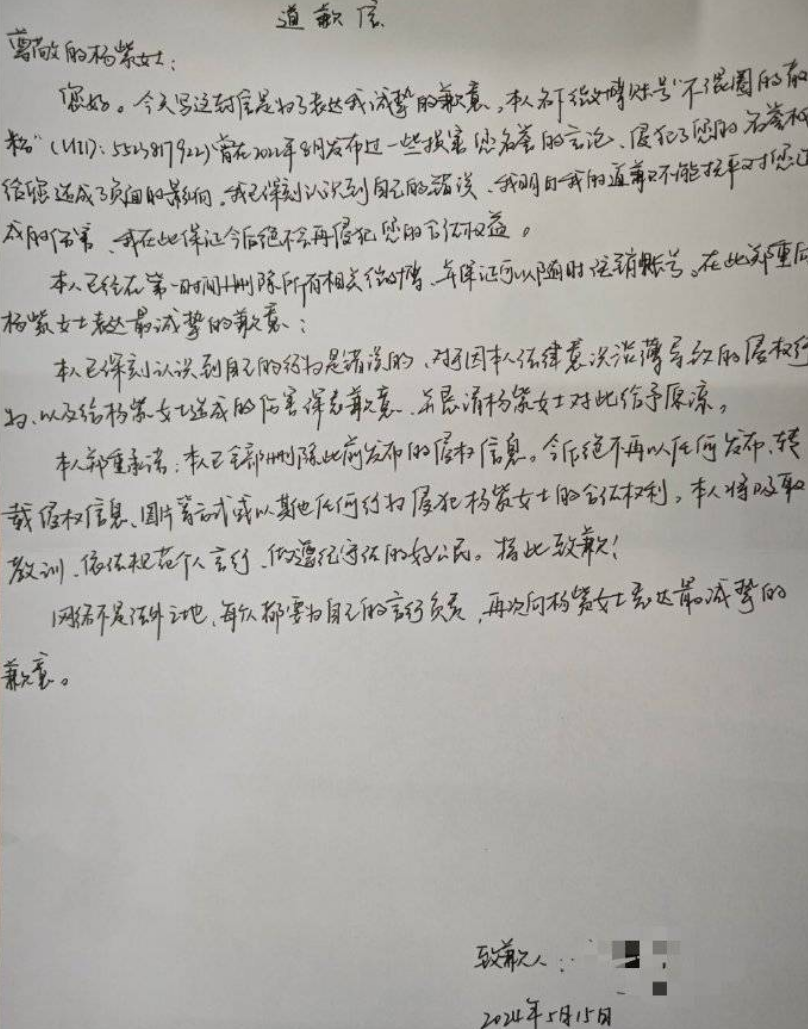 道歉信
尊敬的杨紫女士：
您好。今天写这封信是为了表达我诚挚的歉意，本人名下微博账号“不混圈的散
粉”(UID: 5523817922)曾在2022年8月发布过一些损害您名誉的言论、侵犯了您的名誉权
给您造成了负面的影响。我已深刻认识到自己的错误、我明白我的道歉不能抚平对您造
成的伤害、我在此保证今后绝不会再侵犯您的合法权益。
本人已经在第一时间删除所有相关微博、并保证可以随时注销账号。在此郑重向
杨紫女士表达最诚挚的歉意：
本人已深刻认识到自己的行为是错误的、对于因本人法律意识淡薄导致的侵权行
为、以及给杨紫女士造成的伤害深表歉意、并恳请杨紫女士对此给予原谅。
本人郑重承诺：本人已全部删除此前发布的侵权信息。今后绝不再以任何发布、转
载侵权信息、图片等方式或以其他任何行为侵犯杨紫女士的合法权利。本人将吸取
教训、依法规范个人言行、做遵纪守法的好公民。特此致歉！
网络不是法外之地、每人都要为自己的言行负责，再次向杨紫女士表达最诚挚的
歉意。
致歉人：
2024年5月15日